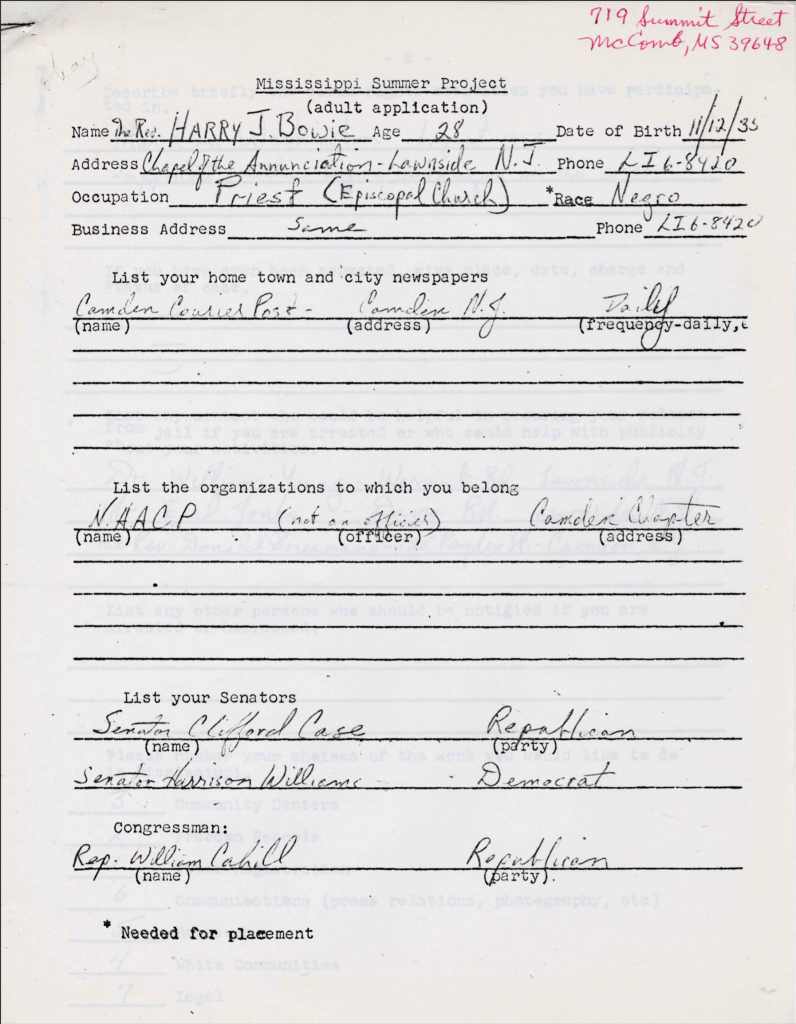 719 Summit Street
McComb, MS 39648
okay
Mississippi Summer Project
(adult application)
Name The Rev. HARRY J. Bowie Age 28 Date of Birth 11/12/35
Address Chapel of the Annunciation - Lawnside N.J. Phone LI 6-8420
Occupation Priest (Episcopal Church) *Race Negro
Business Address Same Phone LI6-8420
List your home town and city newspapers
Camden Courier Post - Camden N.J. Daily
(name) (address) (frequency-daily,
List the organizations to which you belong
N.A.A.C.P (not an officer) Camden Chapter
(name) (officer) (address)
List your Senators
Senator Clifford Case Republican
(name) (party)
Senator Harrison Williams - Democrat
Congressman:
Rep. William Cahill Republican
(name) (party).
* Needed for placement